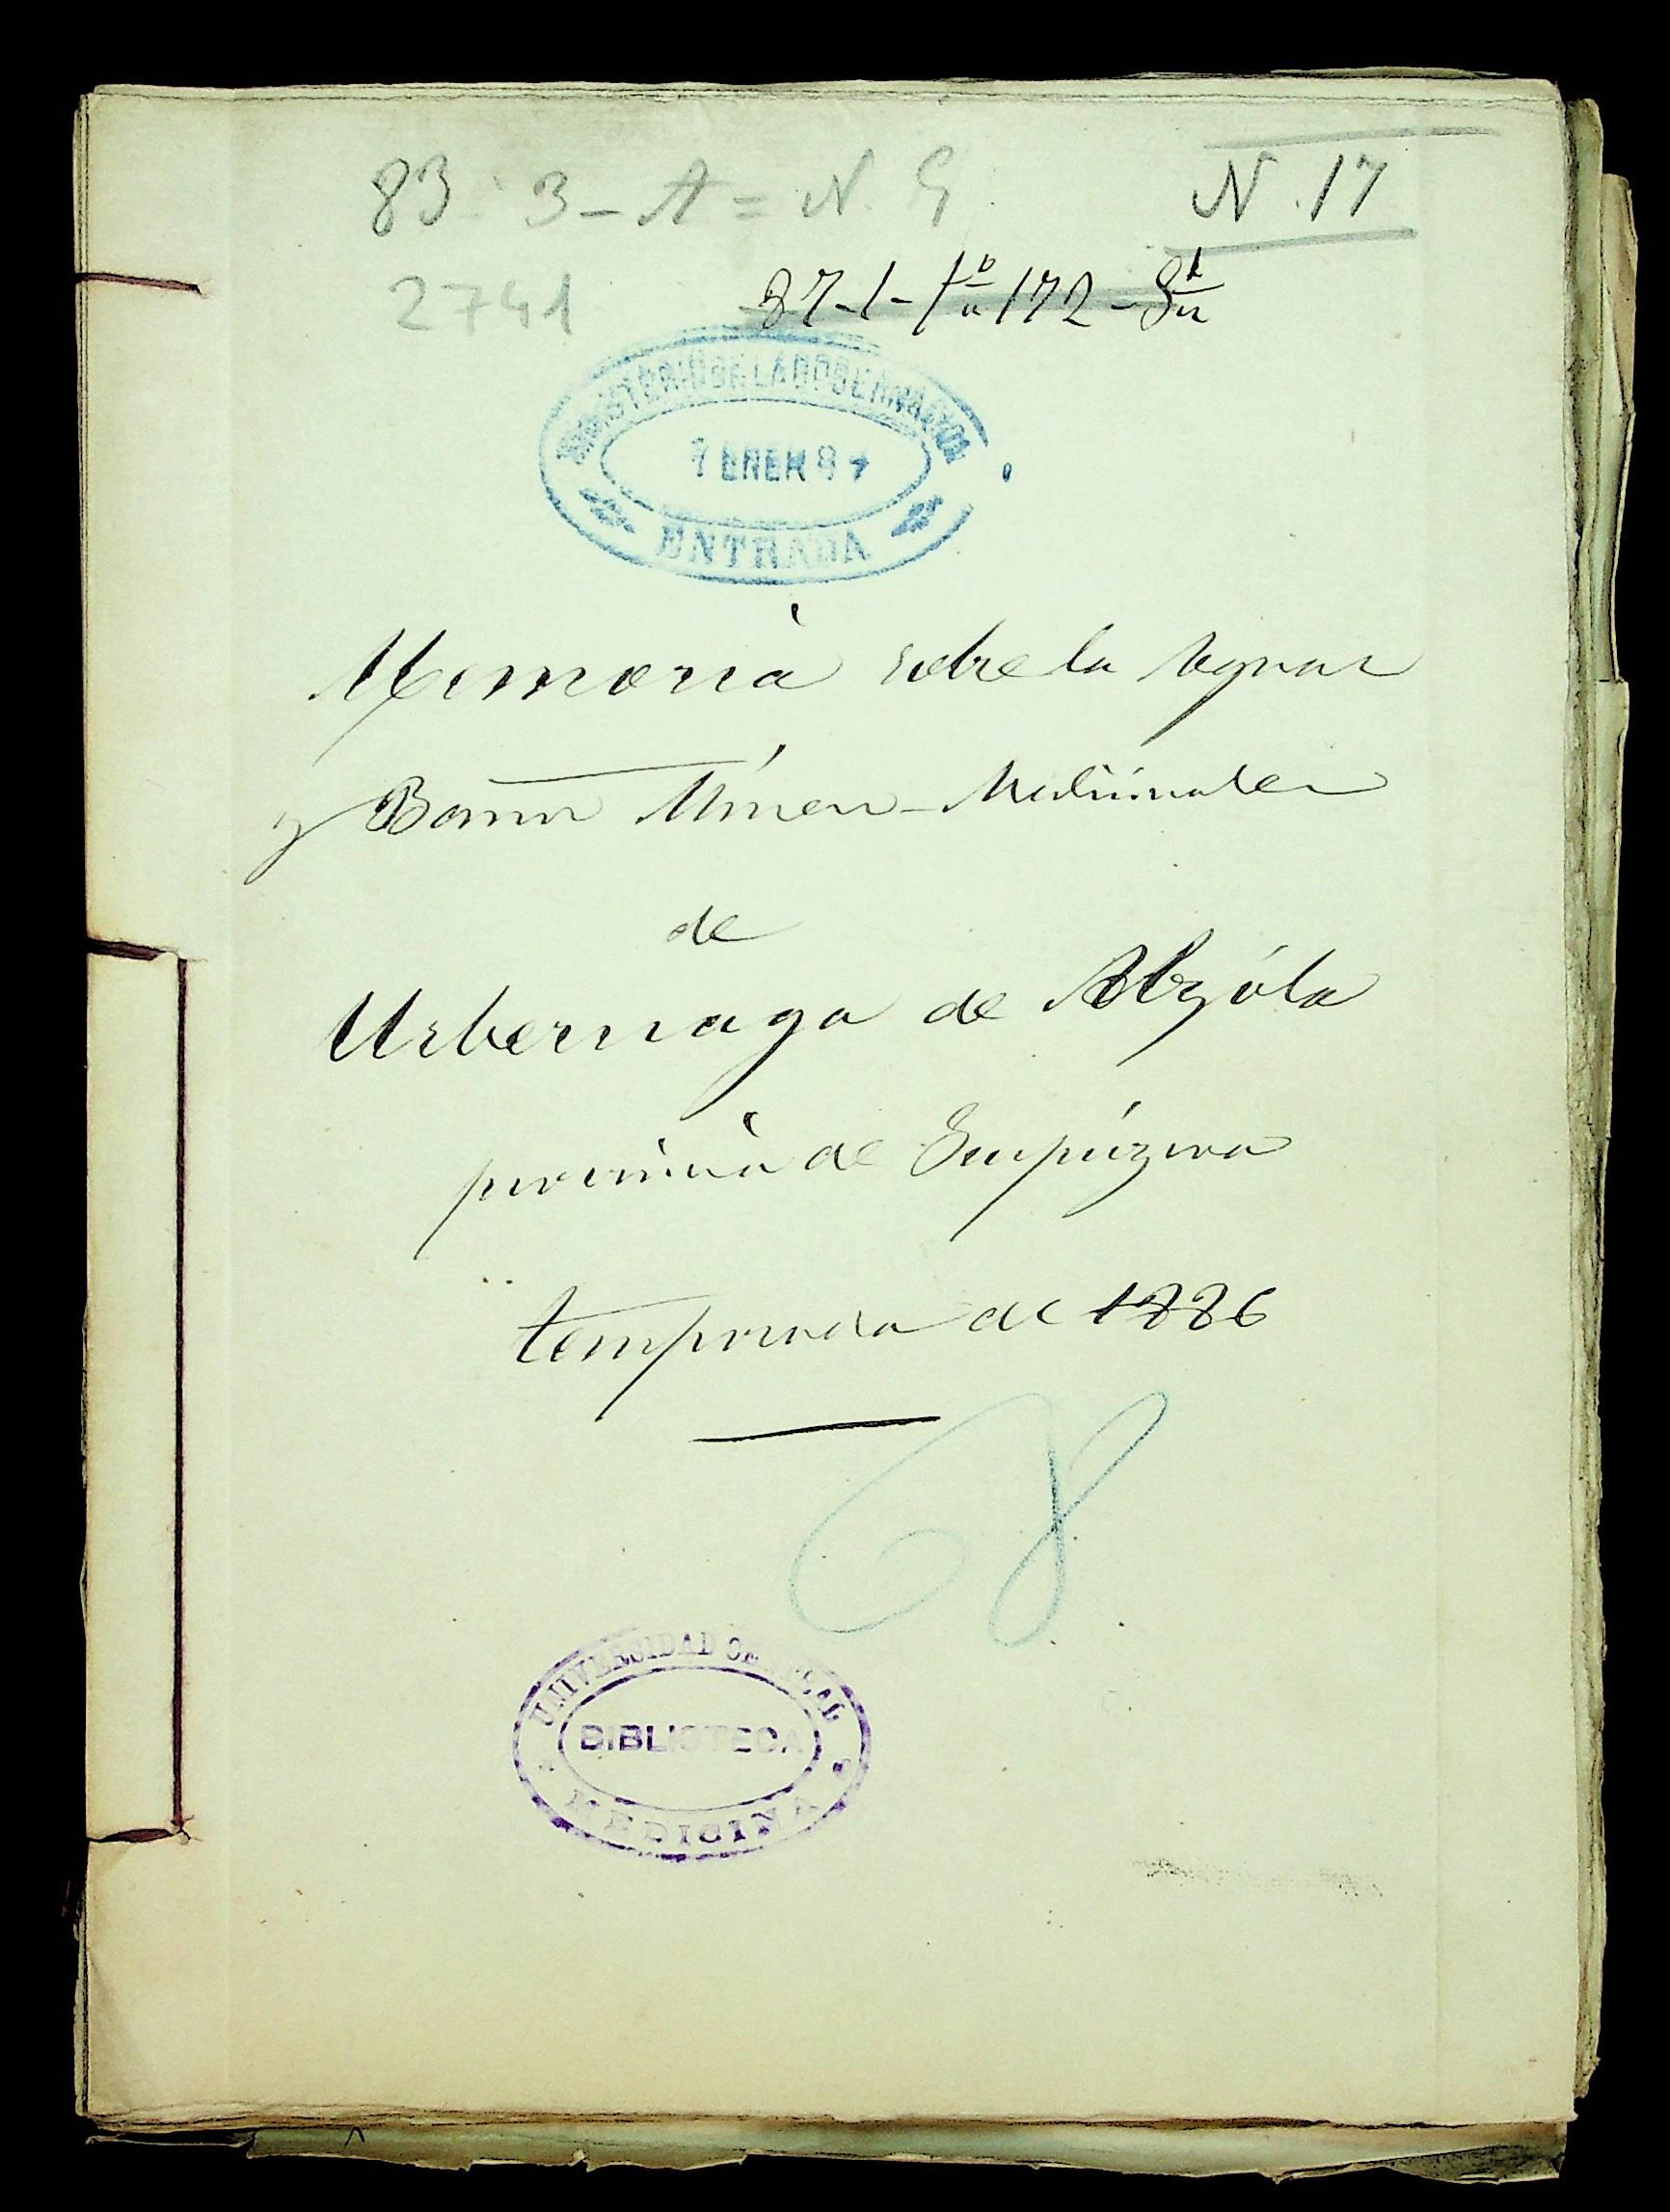 83-3-A=N.9
N.17
2741
87-1-
MINISTERIO DE LA GOBERNACION
7 ENER 87
ENTRADA
Memoria sobre la Aguas
y Baños Minero-Medicinales
de
Urberuaga de Alzóla
provincia de Guipúzcoa
temporada de 1886
68
UNIVERSIDAD
BIBLIOTECA
MEDICINA